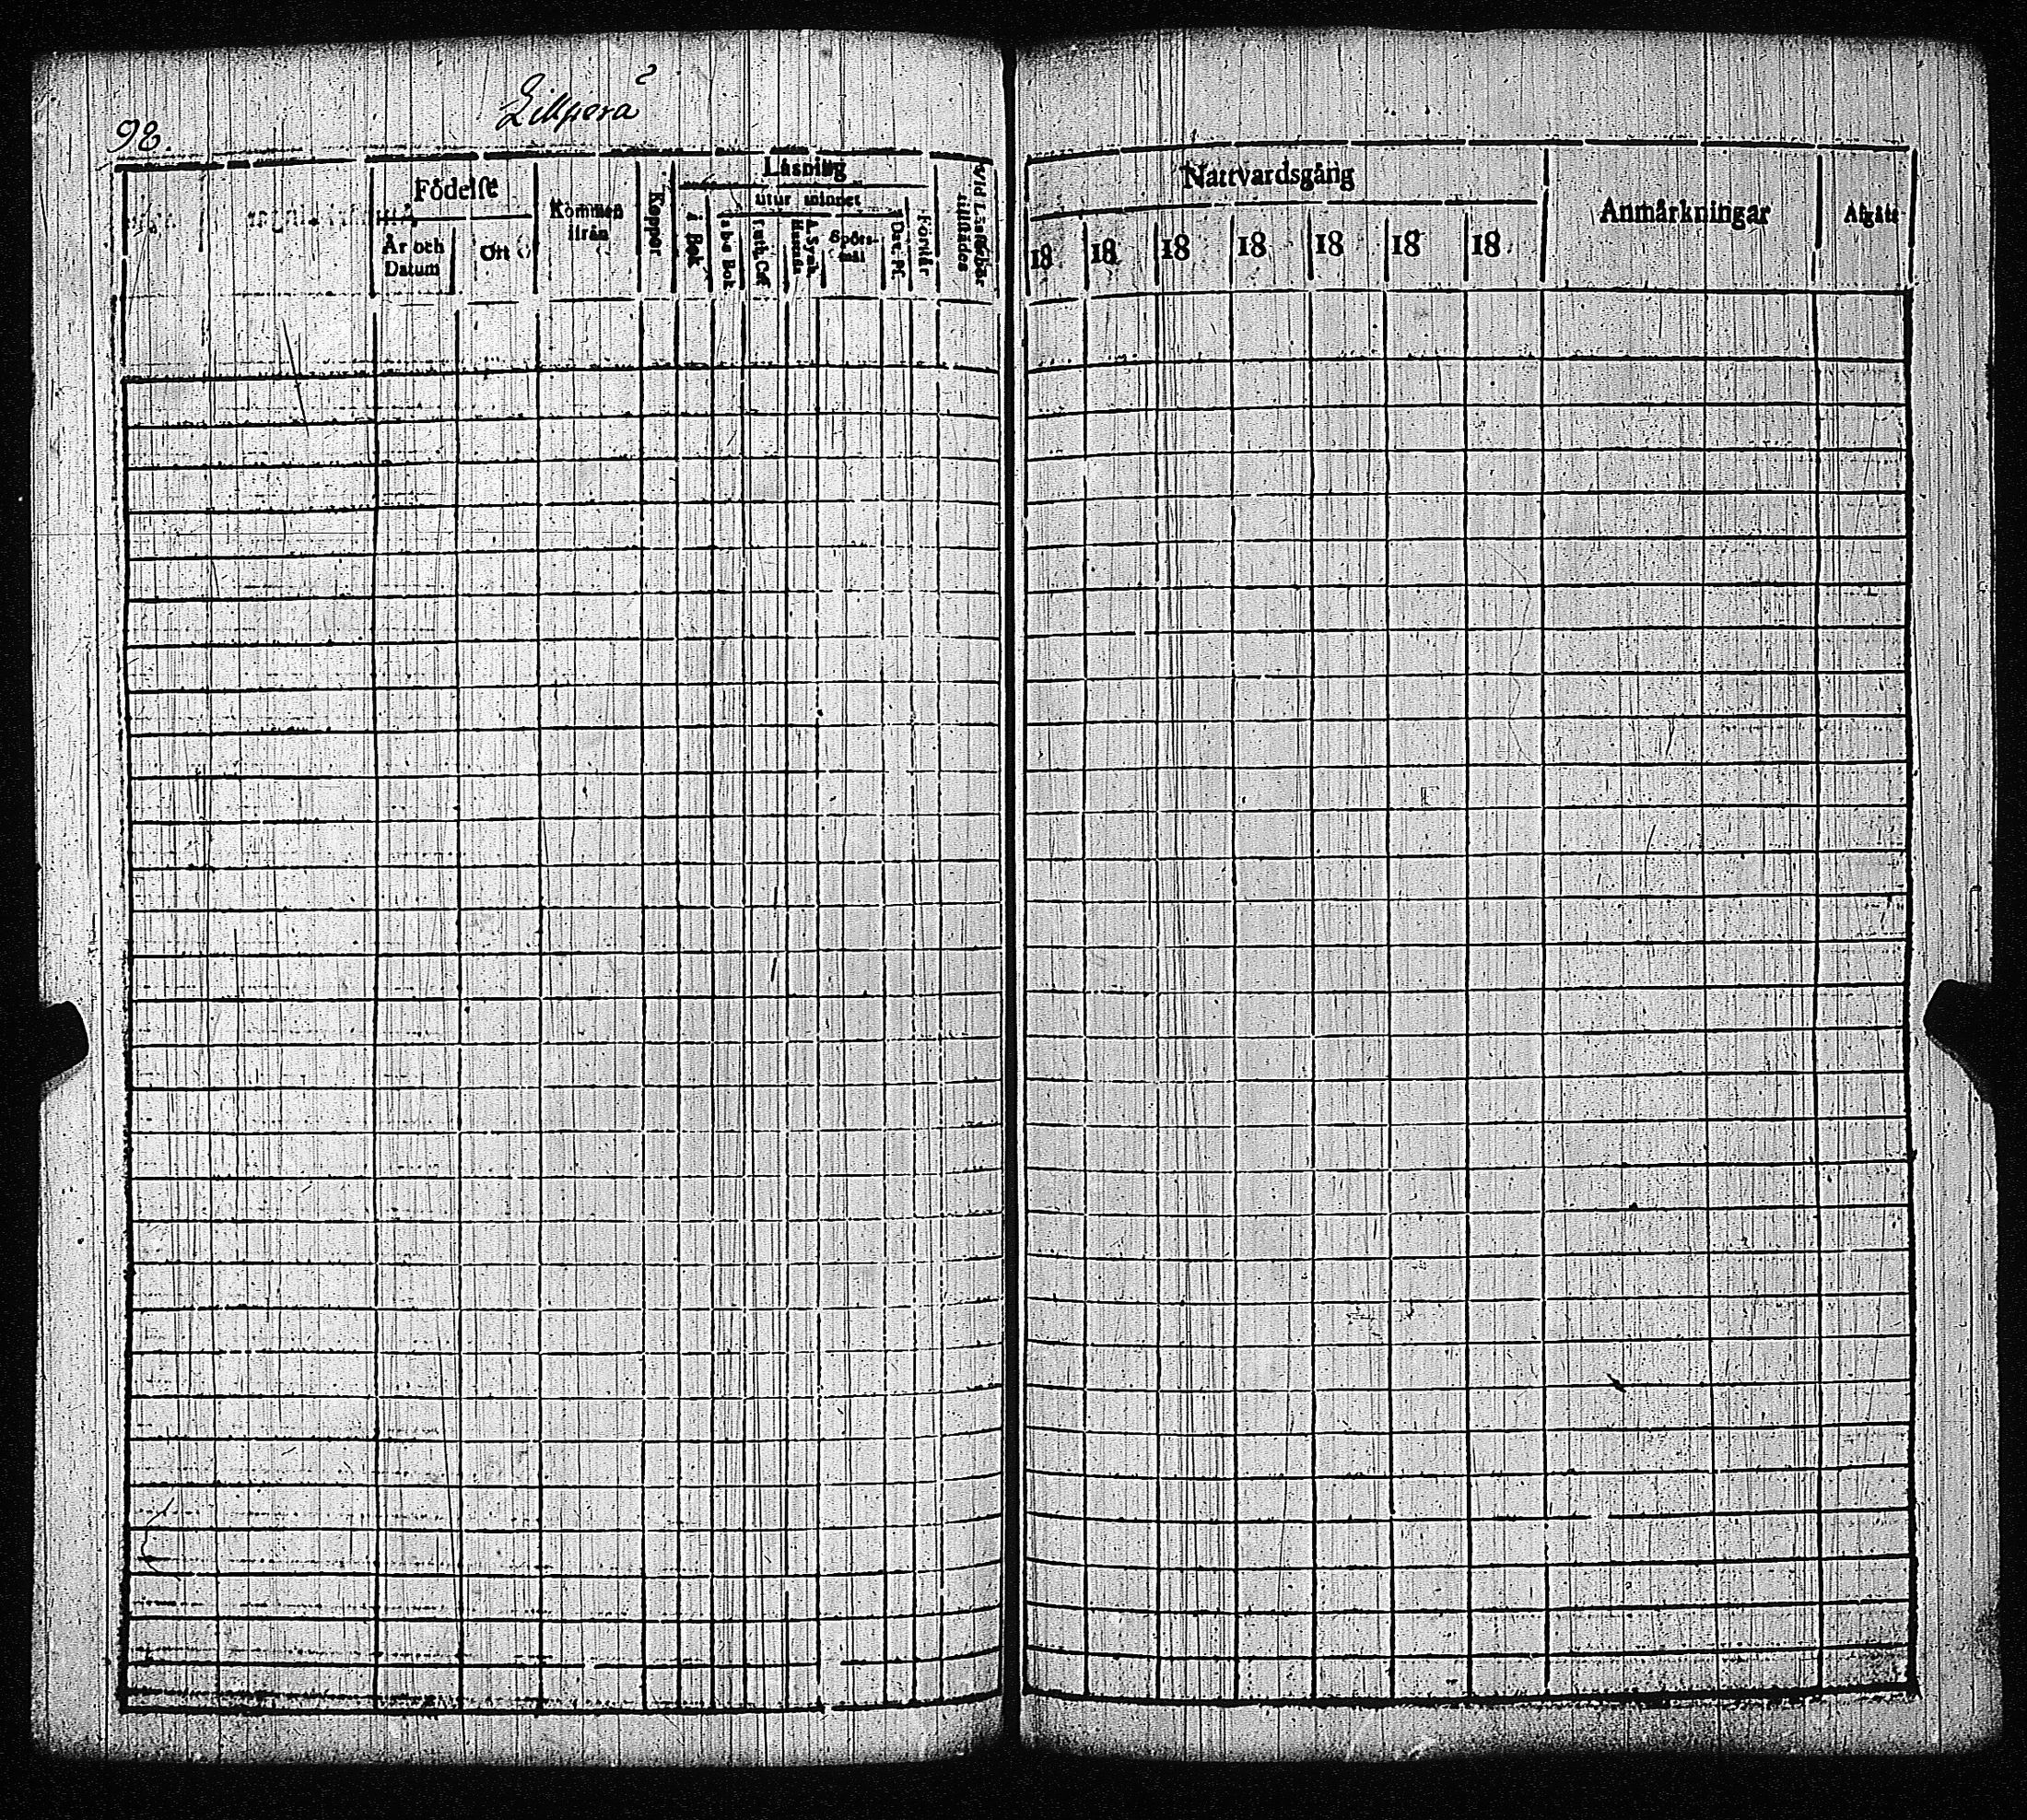 98.
Lillporå
Födelse
År och Datum
Ort
Kommen ifrån
Koppor
Läsning
i Bok
utur minnet
a b c Bok
Luth. Cat.
Hustafla
A. Symb.
Spörsmål
Dav. Ps.
Förstår
Vid Läseförhör tillstädes
Nattvardsgång
18 18 18 18 18 18 18
Anmärkningar
Afgått